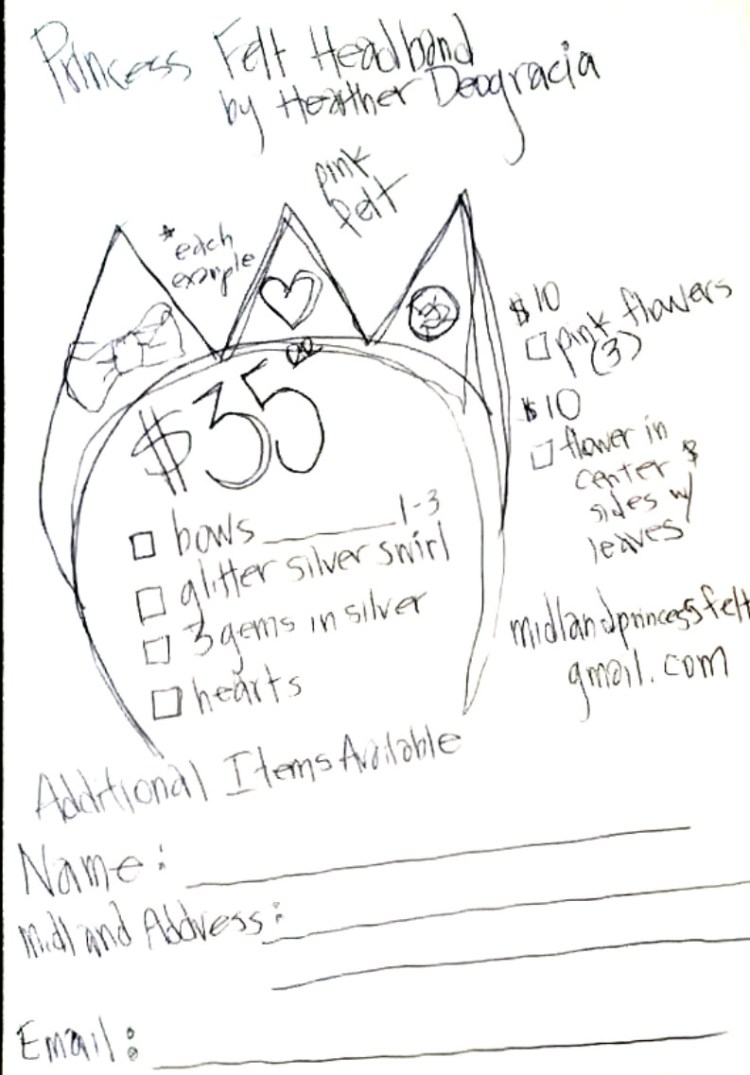 Princess Felt Headband
by Heather Deogracia
pink
felt
*each
example
$35.00
□ bows ________ 1-3
□ glitter silver swirl
□ 3 gems in silver
□ hearts
$10
□ pink flowers
(3)
$10
□ flower in
center &
sides w/
leaves
midlandprincessfelt
gmail.com
Additional Items Available
Name:
Midland Address:
Email: